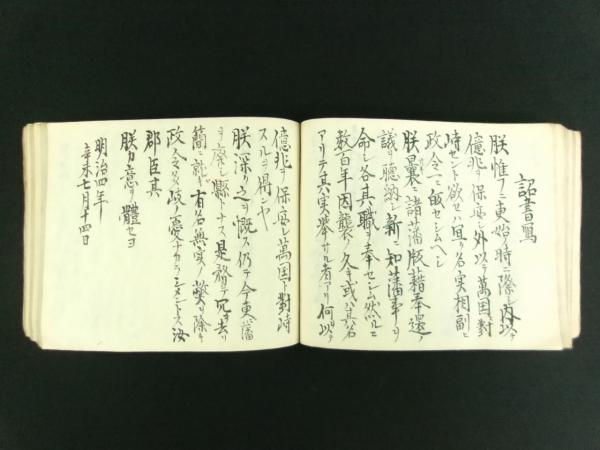 詔書写
朕惟フニ更始ノ時ニ際シ内以テ
億兆ヲ保安シ外以テ萬国ト對
峙セント欲セハ宜ク名実相副ヒ
政令一ニ皈セシムヘシ
朕曩ニ諸藩版籍奉還ノ
議ヲ聴納シ新ニ知藩事ヲ
命シ各其職ヲ奉セシム然ルニ
数百年因襲ノ久キ或ハ其名
アリテ其実挙サル者アリ何以テ
億兆ヲ保安シ萬国ト對峙
スルヲ得ンヤ
朕深ク之ヲ慨ス仍テ今更ニ藩
ヲ廃シ縣トナス是務テ冗ヲ去リ
簡ニ就キ有名無実ノ弊ヲ除キ
政令多岐ノ憂ナカラシメントス汝
郡臣其
朕カ意ヲ體セヨ
明治四年
辛未七月十四日